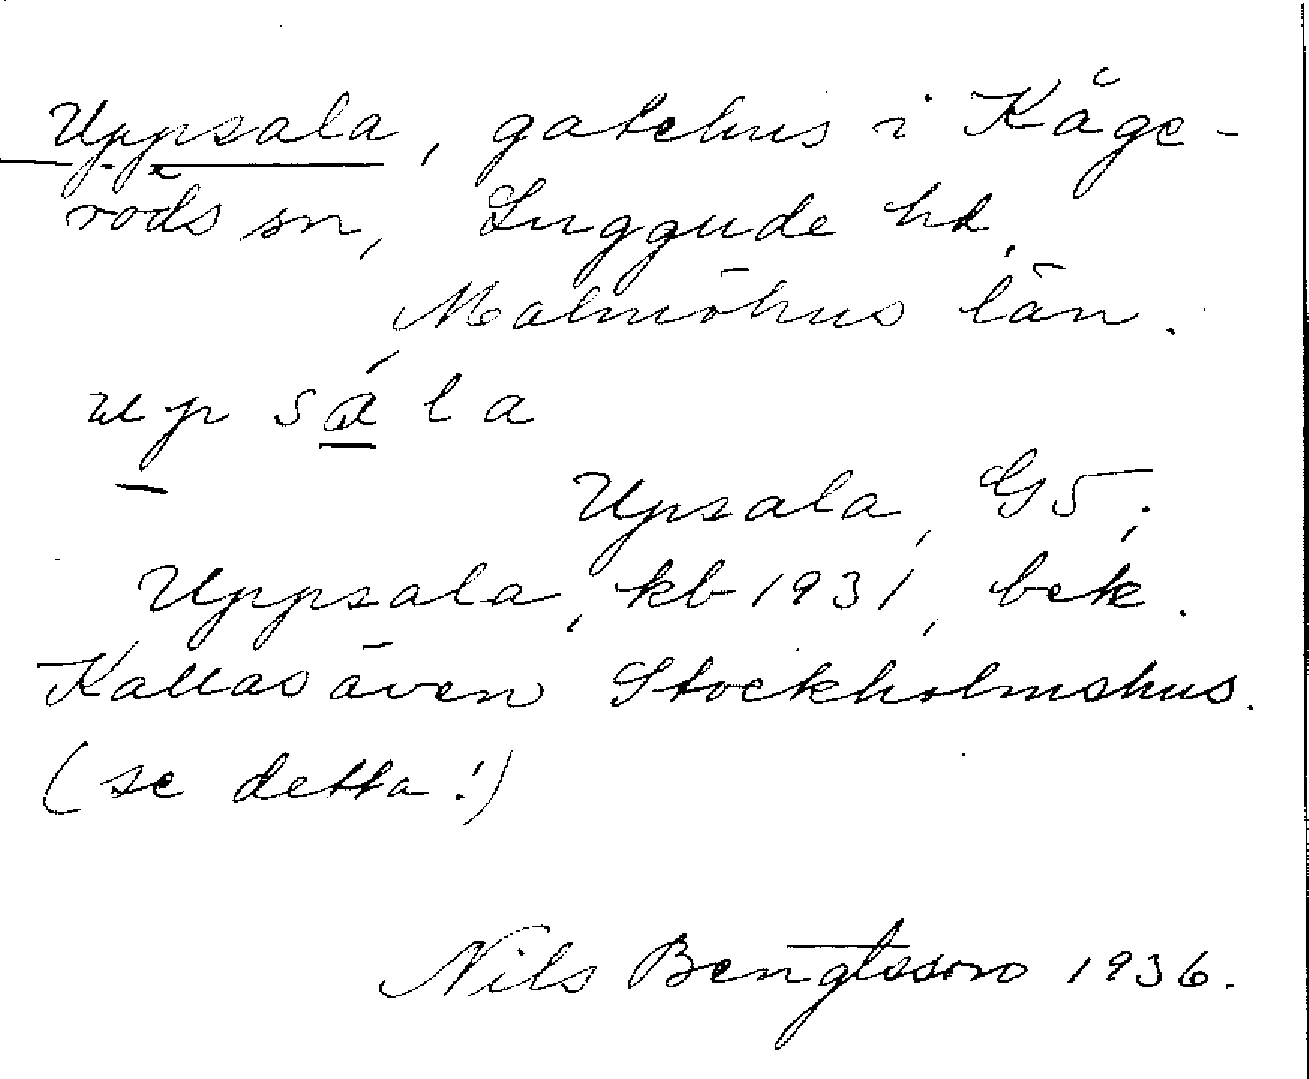 Uppsala, gatehus i Kåge-
röds sn, Luggude hd,
Malmöhus län.
up sá la
Upsala, G5;
Uppsala, kb 1931, bek.
Kallas även Stockholmshus.
(se detta!)
Nils Bengtsson 1936.